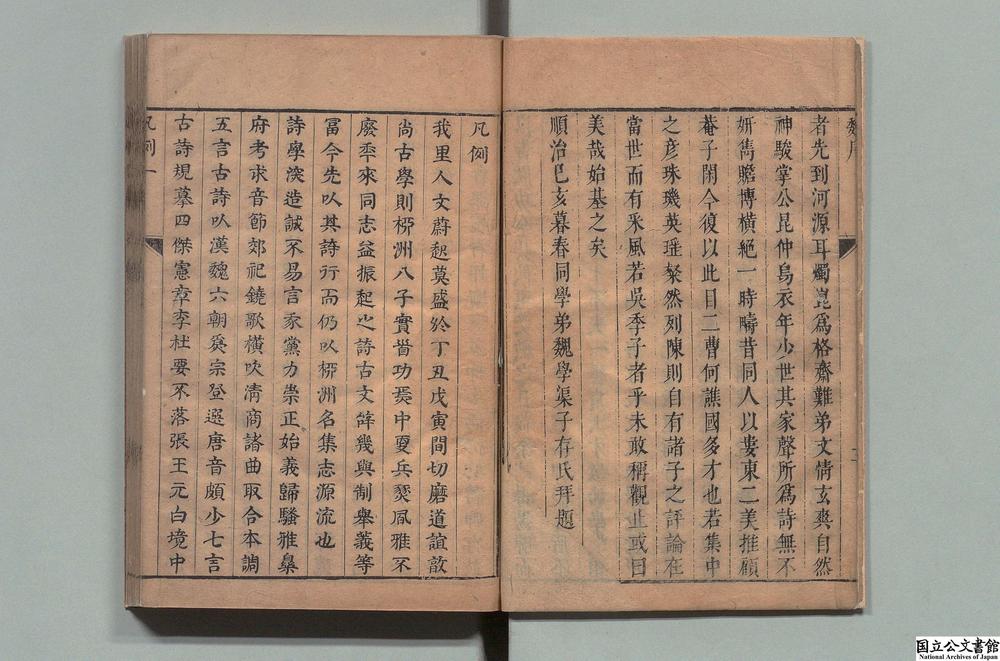 魏序
者先到河源耳燭崑爲格齋難弟文情玄爽自然
神駿掌公昆仲烏衣年少世其家聲所爲詩無不
妍雋贍博橫絕一時疇昔同人以婁東二美推顧
菴子閒今復以此目二曹何譙國多才也若集中
之彦珠璣英瑶粲然列陳則自有諸子之評論在
當世而有釆風若吳季子者乎未敢稱觀止或曰
美哉始基之矣
順治己亥暮春同學弟魏學渠子存氏拜題
二
凡例
我里人文蔚起莫盛於丁丑戊寅間切磨道誼敵
尚古學則栁洲八子實嗇功焉中夏兵燹風雅不
廢年來同志益振起之詩古文辭幾與制舉義等
冨今先以其詩行而仍以栁洲名集志源流也
詩學深造誠不易言家黨力崇正始義歸騷雅樂
府考求音節郊祀鐃歌橫吹淸商諸曲取合本調
五言古詩以漢魏六朝爲宗登選唐音頗少七言
古詩規摹四傑憲章李杜要不落張王元白境中
凡例
一
国立公文書館
National Archives of Japan